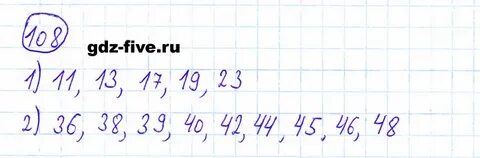 108
gdz-five.ru
1) 11, 13, 17, 19, 23
2) 36, 38, 39, 40, 42, 44, 45, 46, 48